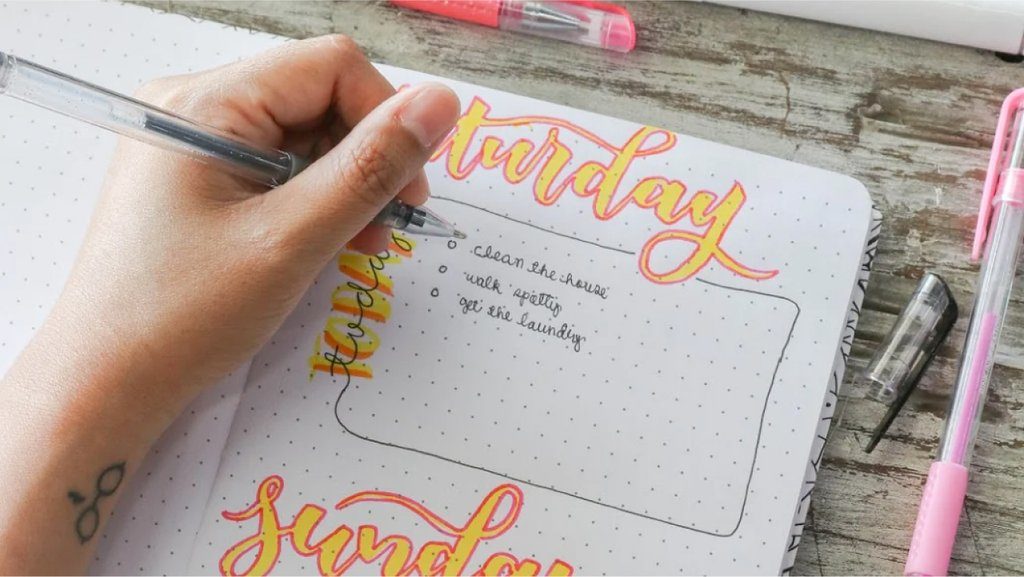 aturday
today
clean the house
walk spotty
get the laundry
Sunday